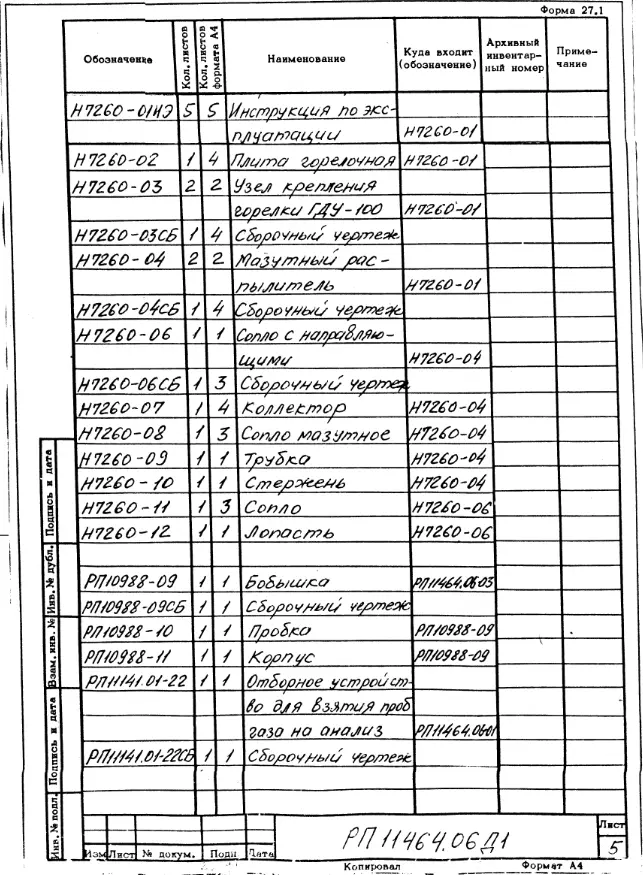 Форма 27.1
Обозначение Кол. листов Кол. листов формата А4 Наименование Куда входит (обозначение) Архивный инвентарный номер Примечание
Н7260-01ИЭ 5 5 Инструкция по экс-
плуатации Н7260-01
Н7260-02 1 4 Плита горелочная Н7260-01
Н7260-03 2 2 Узел крепления
горелки ГДУ-100 Н7260-01
Н7260-03СБ 1 4 Сборочный чертеж
Н7260-04 2 2 Мазутный рас-
пылитель Н7260-01
Н7260-04СБ 1 4 Сборочный чертеж
Н7260-06 1 1 Сопло с направляю-
щими Н7260-04
Н7260-06СБ 1 3 Сборочный чертеж
Н7260-07 1 4 Коллектор Н7260-04
Н7260-08 1 3 Сопло мазутное Н7260-04
Н7260-09 1 1 Трубка Н7260-04
Н7260-10 1 1 Стержень Н7260-04
Н7260-11 1 3 Сопло Н7260-06
Н7260-12 1 1 Лопасть Н7260-06
РП10988-09 1 1 Бобышка РП11464.06-03
РП10988-09СБ 1 1 Сборочный чертеж
РП10988-10 1 1 Пробка РП10988-09
РП10988-11 1 1 Корпус РП10988-09
РП11141.01-22 1 1 Отборное устройст-
во для взятия проб
газа на анализ РП11464.06-01
РП11141.01-22СБ 1 1 Сборочный чертеж
Подпись и дата
Инв. № дубл.
Взам. инв. №
Подпись и дата
Инв. № подл.
Изм Лист № докум. Подп Дата
РП11464.06Д1
Лист
5
Копировал Формат А4